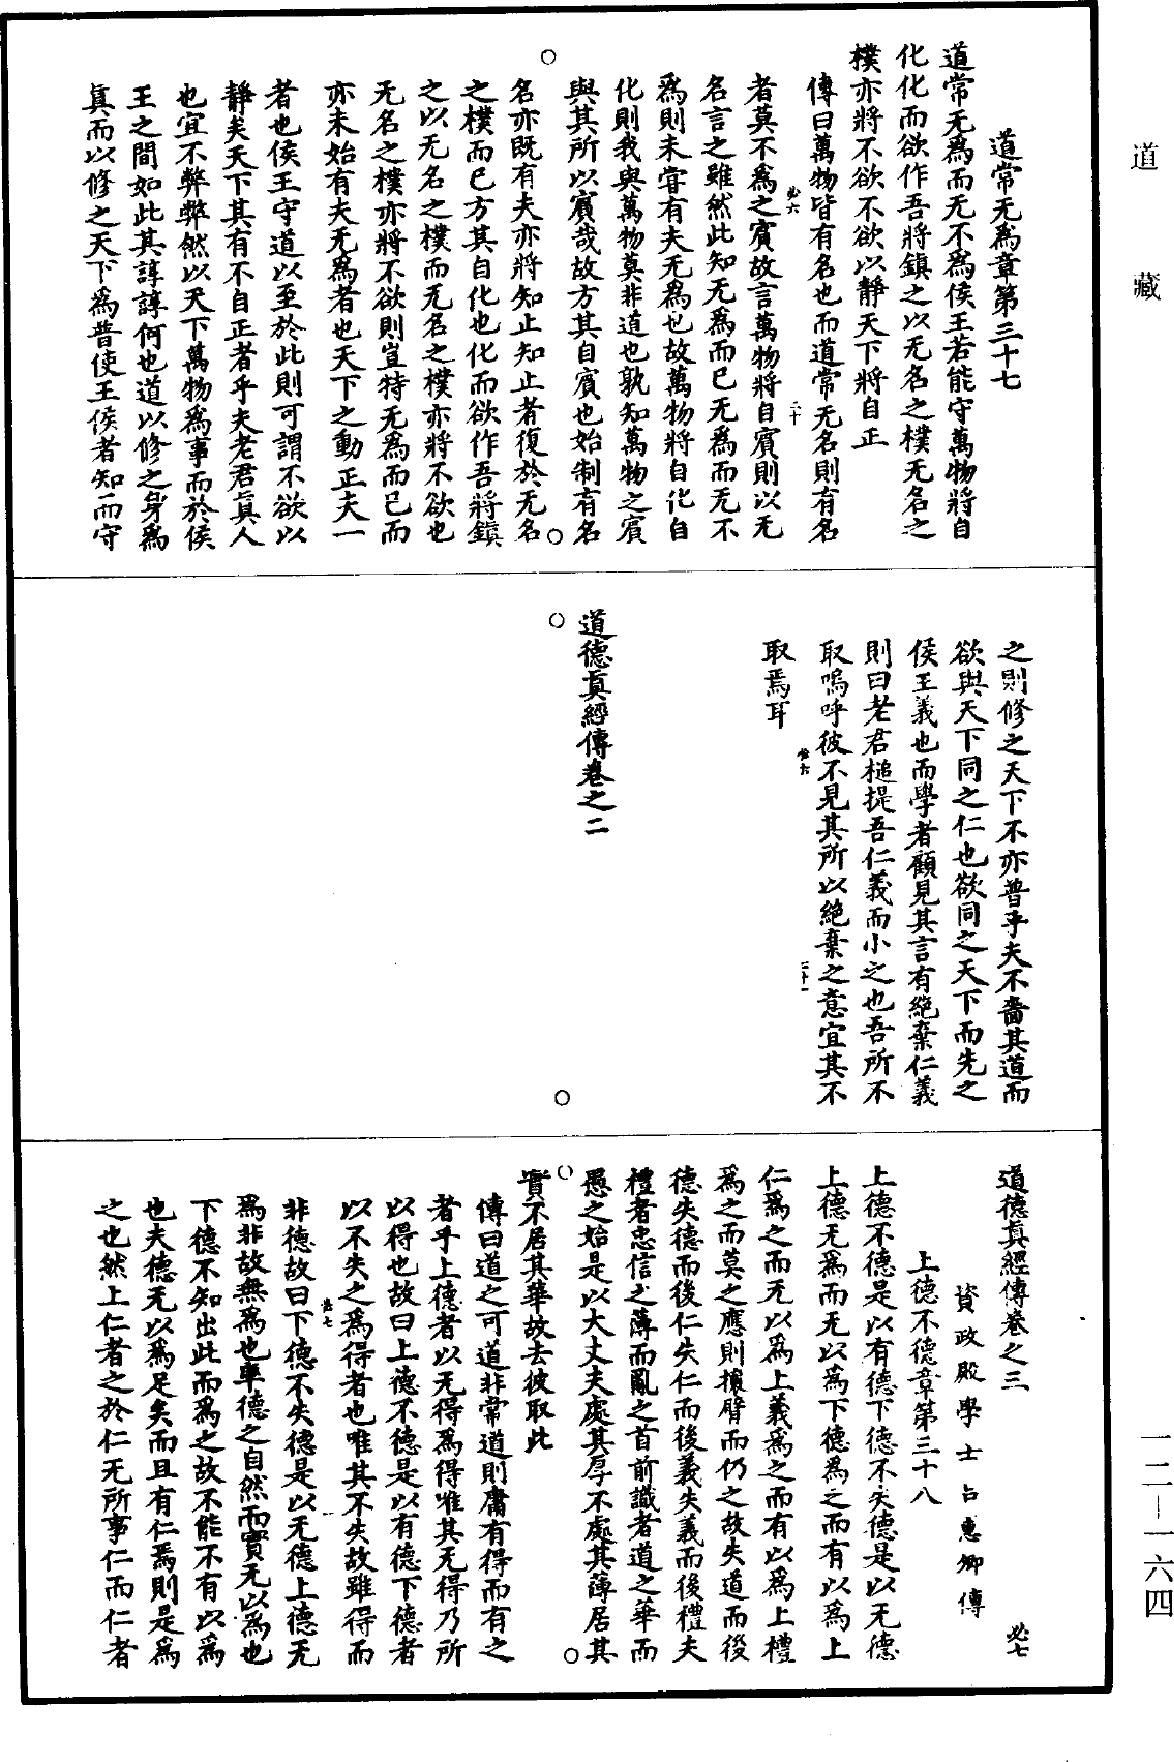 道藏
道常无爲章第三十七
道常无爲而无不爲侯王若能守萬物將自
化化而欲作吾將鎮之以无名之樸无名之
樸亦將不欲不欲以靜天下將自正
傳曰萬物皆有名也而道常无名則有名
必六
二十
者莫不爲之賓故言萬物將自賓則以无
名言之雖然此知无爲而已无爲而无不
爲則未甞有夫无爲也故萬物將自化自
化則我與萬物莫非道也孰知萬物之賓
與其所以賓哉故方其自賓也始制有名
名亦既有夫亦將知止知止者復於无名
之樸而已方其自化也化而欲作吾將鎮
之以无名之樸而无名之樸亦將不欲也
无名之樸亦將不欲則豈特无爲而已而
亦未始有夫无爲者也天下之動正夫一
者也侯王守道以至於此則可謂不欲以
靜矣天下其有不自正者乎夫老君真人
也宜不弊弊然以天下萬物爲事而於侯
王之間如此其諄諄何也道以修之身爲
真而以修之天下爲普使王侯者知而守
之則修之天下不亦普乎夫不嗇其道而
欲與天下同之仁也欲同之天下而先之
侯王義也而學者顧見其言有絕棄仁義
則曰老君槌提吾仁義而小之也吾所不
取嗚呼彼不見其所以絕棄之意宜其不
必六
二十一
取焉耳
道德真經傳卷之二
道德真經傳卷之三
必七
資政殿學士吕惠卿傳
上德不德章第三十八
上德不德是以有德下德不失德是以无德
上德无爲而无以爲下德爲之而有以爲上
仁爲之而无以爲上義爲之而有以爲上禮
爲之而莫之應則攘臂而仍之故失道而後
德失德而後仁失仁而後義失義而後禮夫
禮者忠信之薄而亂之首前識者道之華而
愚之始是以大丈夫處其厚不處其薄居其
實不居其華故去彼取此
傳曰道之可道非常道則庸有得而有之
者乎上德者以无得爲得唯其无得乃所
以得也故曰上德不德是以有德下德者
以不失之爲得者也唯其不失故雖得而
必七
一
非德故曰下德不失德是以无德上德无
爲非故無爲也率德之自然而實无以爲也
下德不知出此而爲之故不能不有以爲
也夫德无以爲足矣而且有仁焉則是爲
之也然上仁者之於仁无所事仁而仁者
一二—一六四